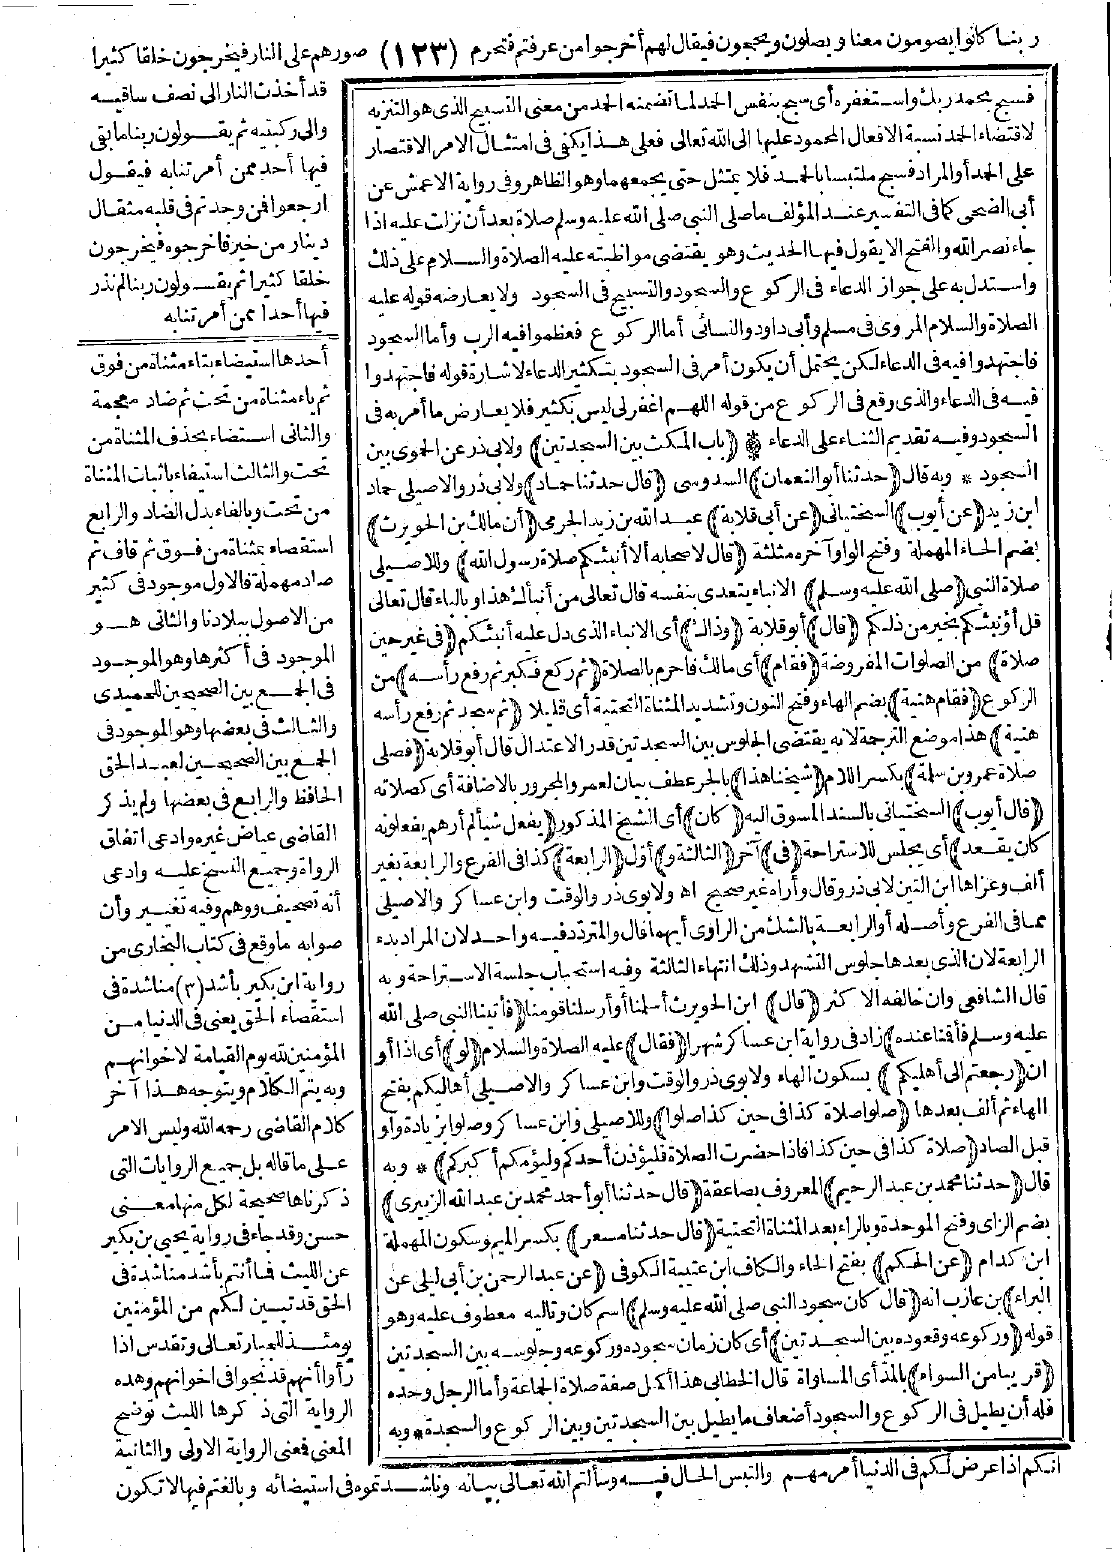 ربنا كانوا يصومون معنا ويصلون ويحجون فيقال لهم أخرجوا من عرفتم فتحرم (١٢٣) صورهم على النار فيخرجون خلقا كثيرا
قد أخذت النار الى نصف ساقيه
والى ركبتيه ثم يقولون ربنا ما بقى
فيها أحد ممن أمرتنا به فيقول
ارجعوا فمن وجدتم فى قلبه مثقال
دينار من خير فاخرجوه فيخرجون
خلقا كثيرا ثم يقولون ربنا لم نذر
فيها أحدا ممن أمرتنا به
فسبح بحمد ربك واستغفره أى سبح بنفس الحمد لما تضمنه الحمد من معنى التسبيح الذى هو التنزيه
لاقتضاء الحمد نسبة الافعال المحمود عليها الى الله تعالى فعلى هذا يكفى فى امتثال الامر الاقتصار
على الحمد أو المراد فسبح ملتبسا بالحمد فلا يمتثل حتى يجمعهما وهو الظاهر وفى رواية الاعمش عن
أبى الضحى كما فى التفسير عند المؤلف ما صلى النبى صلى الله عليه وسلم صلاة بعد أن نزلت عليه اذا
جاء نصر الله والفتح الا يقول فيها الحديث وهو يقتضى مواظبته عليه الصلاة والسلام على ذلك
واستدل به على جواز الدعاء فى الركوع والسجود والتسبيح فى السجود ولا يعارضه قوله عليه
الصلاة والسلام المروى فى مسلم وأبى داود والنسائى أما الركوع فعظموا فيه الرب وأما السجود
فاجتهدوا فيه فى الدعاء لكن يحتمل أن يكون أمر فى السجود بتكثير الدعاء لاشارة قوله فاجتهدوا
فيه فى الدعاء والذى وقع فى الركوع من قوله اللهم اغفر لى ليس بكثير فلا يعارض ما أمر به فى
السجود وفيه تقديم الثناء على الدعاء * (باب المكث بين السجدتين) ولابى ذر عن الحموى بين
السجود * وبه قال (حدثنا أبو النعمان) السدوسى (قال حدثنا حماد) ولابى ذر والاصيلى حماد
ابن زيد (عن أيوب) السختيانى (عن أبى قلابة) عبد الله بن زيد الجرمى (أن مالك بن الحويرث)
بضم الحاء المهملة وفتح الواو آخره مثلثة (قال لاصحابه ألا أنبئكم صلاة رسول الله) وللاصيلى
صلاة النبى (صلى الله عليه وسلم) الانباء يتعدى بنفسه قال تعالى من أنبأك هذا وبالباء قال تعالى
قل أؤنبئكم بخير من ذلكم (قال) أبو قلابة (وذاك) أى الانباء الذى دل عليه أنبئكم (فى غير حين
صلاة) من الصلوات المفروضة (فقام) أى مالك فاحرم بالصلاة (ثم ركع فكبر ثم رفع رأسه) من
الركوع (فقام هنية) بضم الهاء وفتح النون وتشديد المثناة التحتية أى قليلا (ثم سجد ثم رفع رأسه
هنية) هذا موضع الترجمة لانه يقتضى الجلوس بين السجدتين قدر الاعتدال قال أبو قلابة (فصلى
صلاة عمرو بن سلمة) بكسر اللام (شيخنا هذا) بالجر عطف بيان لعمرو المجرور بالاضافة أى كصلاته
(قال أيوب) السختيانى بالسند المسوق اليه (كان) أى الشيخ المذكور (يفعل شيألم أرهم يفعلونه
كان يقعد) أى يجلس للاستراحة (فى) آخر (الثالثة و) أول (الرابعة) كذا فى الفرع والرابعة بغير
ألف وعزاها ابن التين لابى ذر وقال وأراه غير صحيح اه ولابوى ذر والوقت وابن عساكر والاصيلى
مما فى الفرع وأصله أو الرابعة بالشك من الراوى أيهما قال والمتردد فيه واحد لان المراد بدء
الرابعة لان الذى بعدها جلوس التشهد وذلك انتهاء الثالثة وفيه استحباب جلسة الاستراحة وبه
قال الشافعى وان خالفه الاكثر (قال) ابن الحويرث أسلمنا أو أرسلنا قومنا (فأتينا النبى صلى الله
عليه وسلم فأقمنا عنده) زاد فى رواية ابن عساكر شهرا (فقال) عليه الصلاة والسلام (لو) أى اذا أو
ان (رجعتم الى أهليكم) بسكون الهاء ولابوى ذر والوقت وابن عساكر والاصيلى أهاليكم بفتح
الهاء ثم ألف بعدها (صلوا صلاة كذا فى حين كذا صلوا) وللاصيلى وابن عساكر وصلوا بزيادة واو
قبل الصاد (صلاة كذا فى حين كذا فاذا حضرت الصلاة فليؤذن أحدكم وليؤمكم أكبركم) * وبه
قال (حدثنا محمد بن عبد الرحيم) المعروف بصاعقة (قال حدثنا أبو أحمد محمد بن عبد الله الزبيرى)
بضم الزاى وفتح الموحدة وبالراء بعد المثناة التحتية (قال حدثنا مسعر) بكسر الميم وسكون المهملة
ابن كدام (عن الحكم) بفتح الحاء والكاف ابن عتيبة الكوفى (عن عبد الرحمن بن أبى ليلى عن
البراء) بن عازب انه (قال كان سجود النبى صلى الله عليه وسلم) اسم كان وتاليه معطوف عليه وهو
قوله (وركوعه وقعوده بين السجدتين) أى كان زمان سجوده وركوعه وجلوسه بين السجدتين
(قريبا من السواء) بالمد أى المساواة قال الخطابى هذا أكمل صفة صلاة الجماعة وأما الرجل وحده
فله أن يطيل فى الركوع والسجود أضعاف ما يطيل بين السجدتين وبين الركوع والسجدة * وبه
أحدها استيضاء بتاء مثناة من فوق
ثم ياء مثناة من تحت ثم ضاد معجمة
والثانى استضاء بحذف المثناة من
تحت والثالث استيفاء باثبات المثناة
من تحت وبالفاء بدل الضاد والرابع
استقصاء بمثناة من فوق ثم قاف ثم
صاد مهملة فالاول موجود فى كثير
من الاصول ببلادنا والثانى هو
الموجود فى أكثرها وهو الموجود
فى الجمع بين الصحيحين للحميدى
والثالث فى بعضها وهو الموجود فى
الجمع بين الصحيحين لعبد الحق
الحافظ والرابع فى بعضها ولم يذكر
القاضى عياض غيره وادعى اتفاق
الرواة وجميع النسخ عليه وادعى
أنه تصحيف ووهم وفيه تغيير وأن
صوابه ما وقع فى كتاب البخارى من
رواية ابن بكير بأشد (٣) مناشدة فى
استقصاء الحق يعنى فى الدنيا من
المؤمنين لله يوم القيامة لاخوانهم
وبه يتم الكلام ويتوجه هذا آخر
كلام القاضى رحمه الله وليس الامر
على ما قاله بل جميع الروايات التى
ذكرناها صحيحة لكل منها معنى
حسن وقد جاء فى رواية يحيى بن بكير
عن الليث فما أنتم بأشد مناشدة فى
الحق قد تبين لكم من المؤمنين
يومئذ للجبار تعالى وتقدس اذا
رأوا أنهم قد نجوا فى اخوانهم وهذه
الرواية التى ذكرها الليث توضح
المعنى فمعنى الرواية الاولى والثانية
انكم اذا عرض لكم فى الدنيا أمر مهم والتبس الحال فيه وسألتم الله تعالى بيانه وناشدتموه فى استيضائه وبالغتم فيها لا تكون